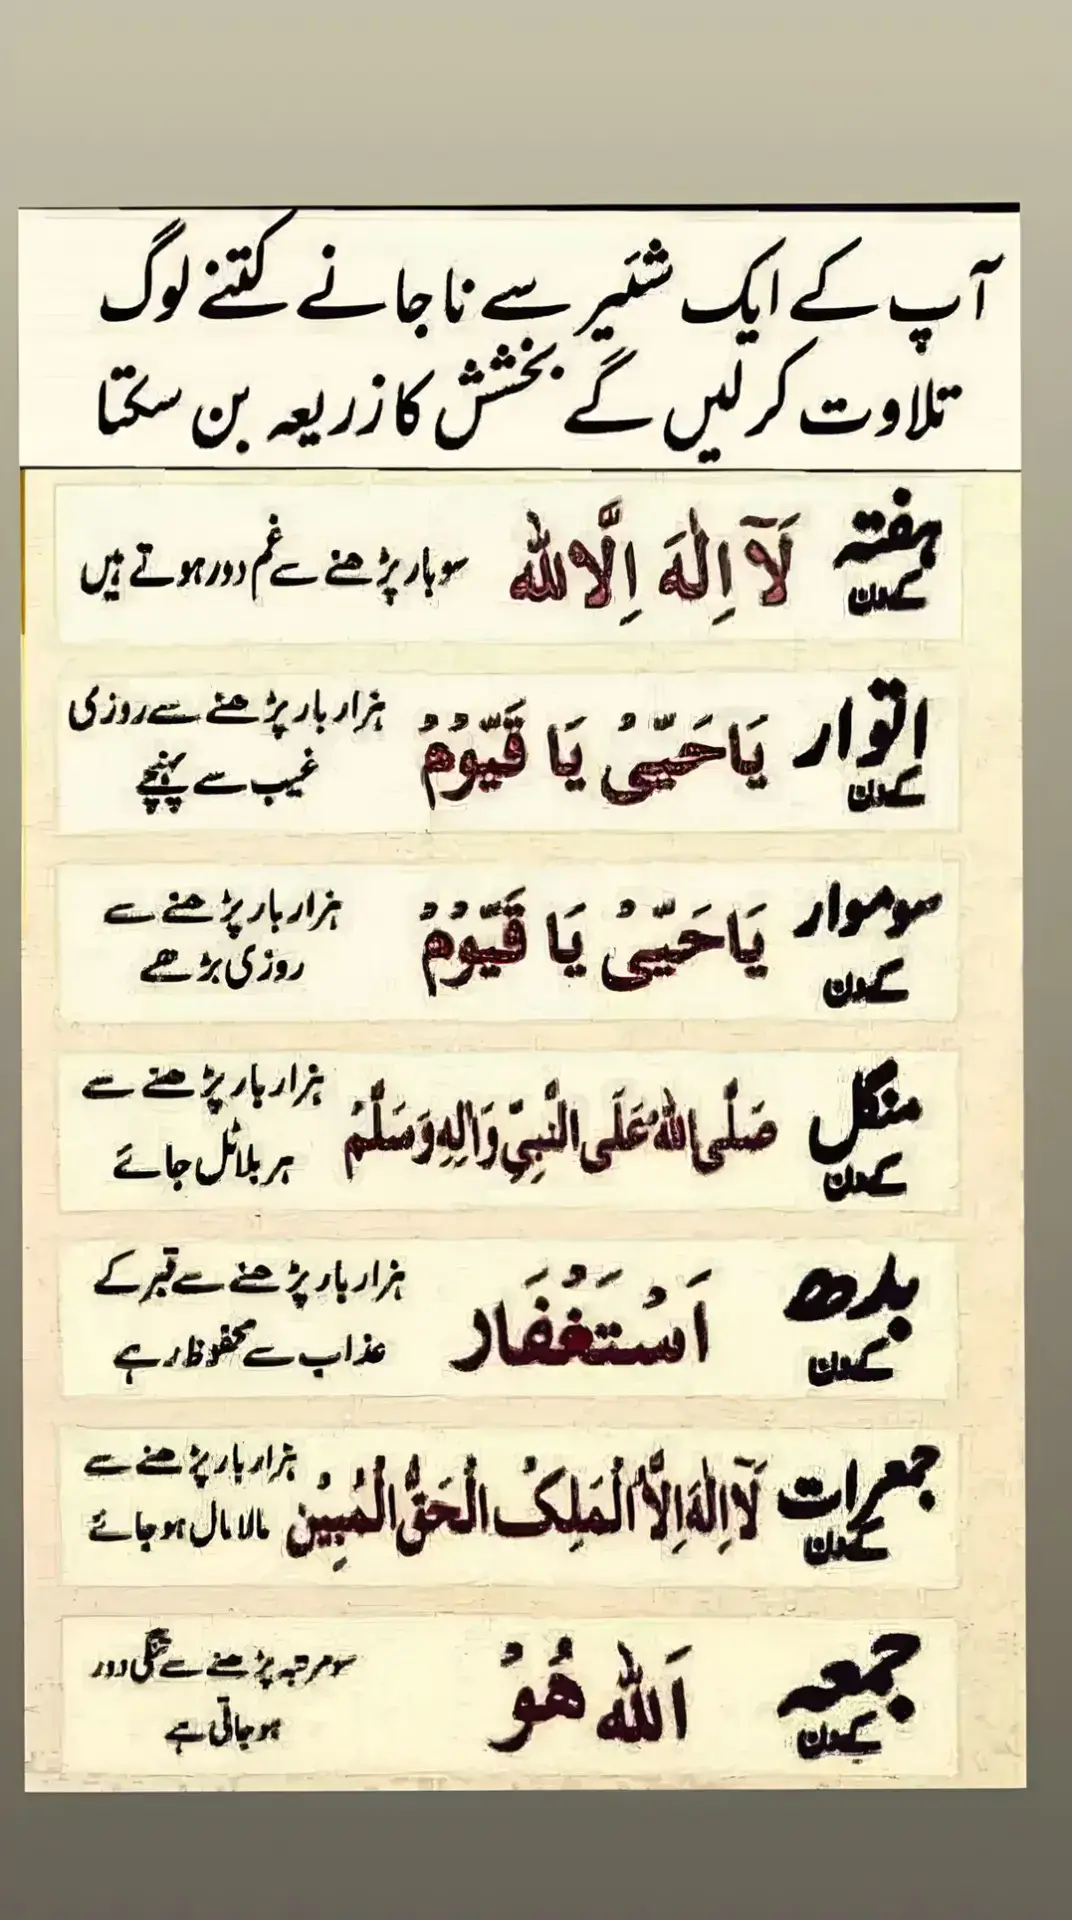 آپ کے ایک شئیر سے نا جانے کتنے لوگ
تلاوت کر لیں گے بخشش کا زریعہ بن سکتا
ہفتہ کے دن لَآ اِلٰهَ اِلَّا الله سو بار پڑھنے سے غم دور ہوتے ہیں
اتوار کے دن يَا حَيّيُ يَا قَيّوُمُ ہزار بار پڑھنے سے روزی
غیب سے پہنچے
سوموار کے دن يَا حَيّيُ يَا قَيّوُمُ ہزار بار پڑھنے سے
روزی بڑھے
منگل کے دن صَلَّى اللهُ عَلَى النَّبِيِّ وَاٰلِهٖ وَسَلَّمْ ہزار بار پڑھنے سے
ہر بلا ٹل جائے
بدھ کے دن اَسْتَغْفَار ہزار بار پڑھنے سے قبر کے
عذاب سے محفوظ رہے
جمعرات کے دن لَآ اِلٰهَ اِلَّا الْمَلِکُ الْحَقُّ الْمُبِيْن ہزار بار پڑھنے سے
مالا مال ہو جائے
جمعہ کے دن اَلله هُوْ سو مرتبہ پڑھنے سے تنگی دور
ہو جاتی ہے